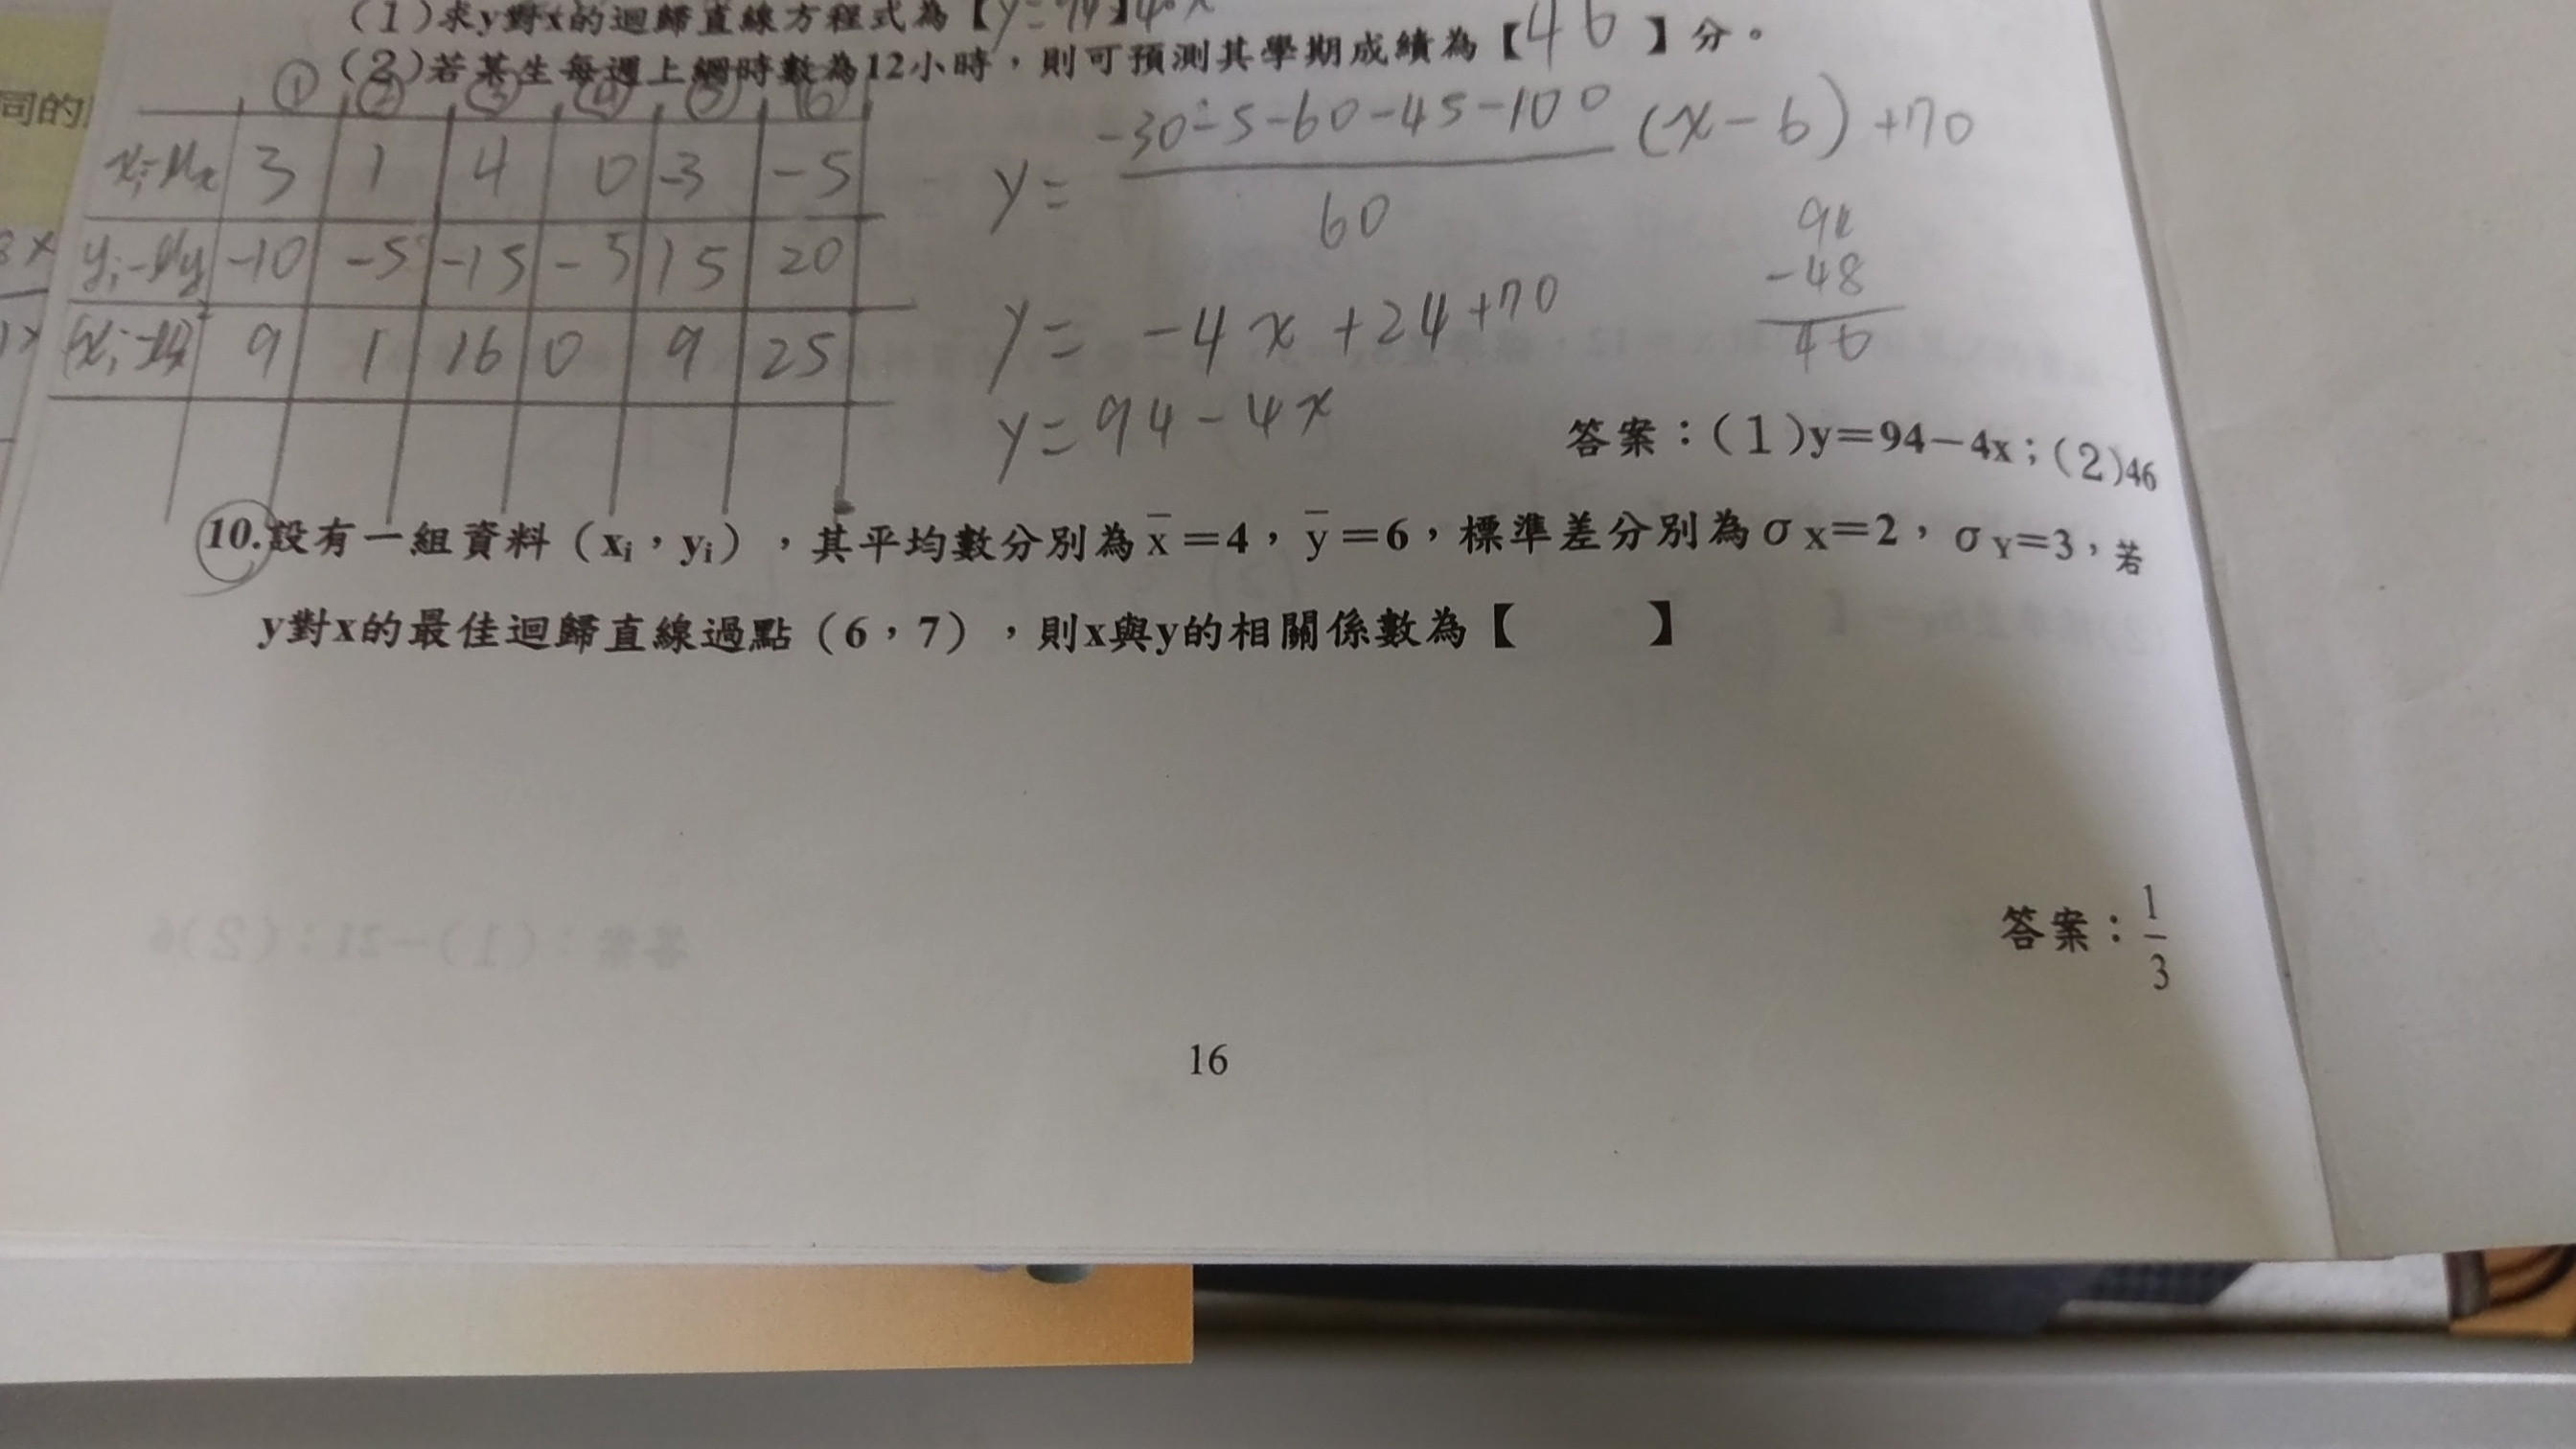 (1)求y對x的迴歸直線方程式為【y=94-4x】
(2)若某生每週上網時數為12小時，則可預測其學期成績為【46】分。
① ② ③ ④ ⑤ ⑥
xᵢ-μx 3 1 4 0 -3 -5
yᵢ-μy -10 -5 -15 -5 15 20
9 1 16 0 9 25
y= -30-5-60-45-100 (x-6)+70
60
y= -4x+24+70
y=94-4x
-48
46
同的
答案：(1)y=94-4x；(2)46
10.設有一組資料（xᵢ，yᵢ），其平均數分別為x̄=4，ȳ=6，標準差分別為σX=2，σY=3，若
y對x的最佳迴歸直線過點（6，7），則x與y的相關係數為【 】
答案：1/3
16